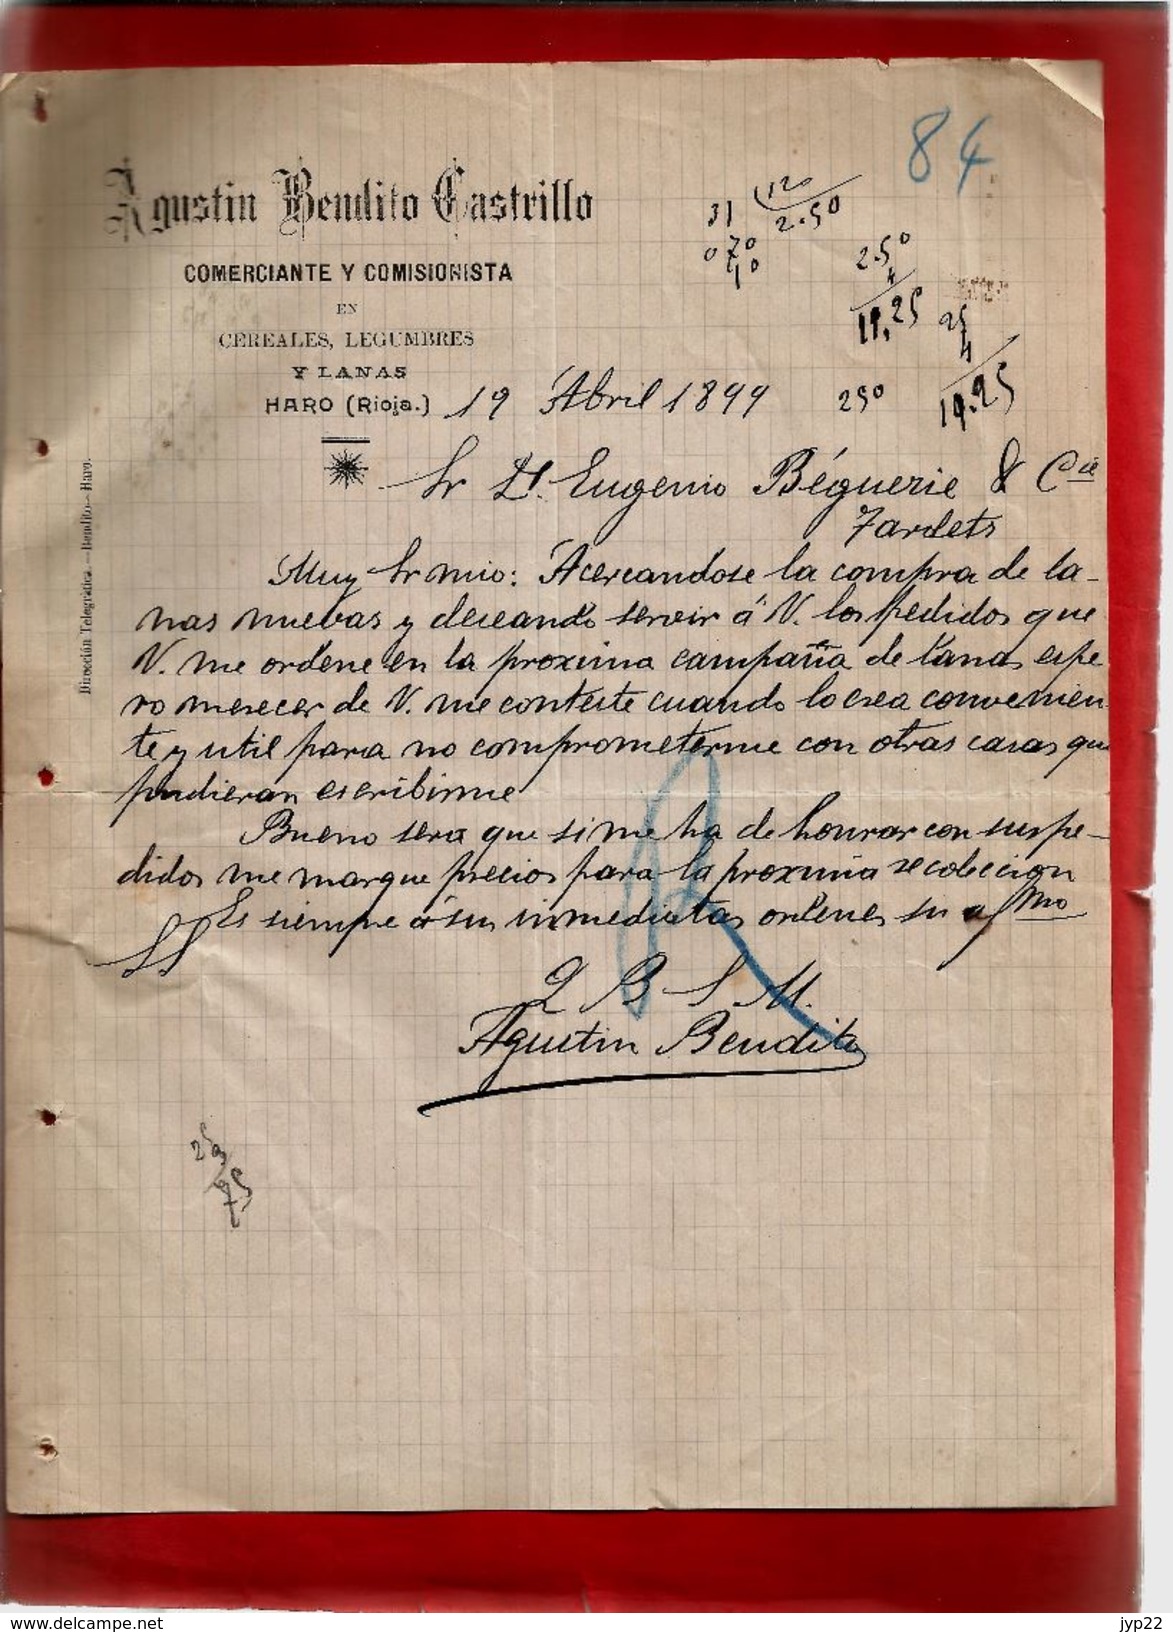 84
Agustin Bendito Castrillo
COMERCIANTE Y COMISIONISTA
EN
CEREALES, LEGUMBRES
Y LANAS
HARO (Rioja.) 19 Abril 1899
31 120
2.50
070
10
2.50
4
19.25
25
4
250
19.25
Dirección Telegráfica.—Bendito—Haro.
Sr D. Eugenio Béguerie & Cie
Tardets
Muy Sr mio: Acercandose la compra de la-
nas nuevas y deseando servir á V. los pedidos que
V. me ordene en la proxima campaña de lanas espe
ro merecer de V. me conteste cuando lo crea convenien
te y util para no comprometerme con otras casas que
pudieran escribirme
Bueno sera que si me ha de honrar con sus pe-
didos me marque precios para la proxima recoleccion
Es siempre á sus inmediatas ordenes su afmo
SS
Q B S M.
Agustin Bendito
25
75
delcampe.net
jyp22